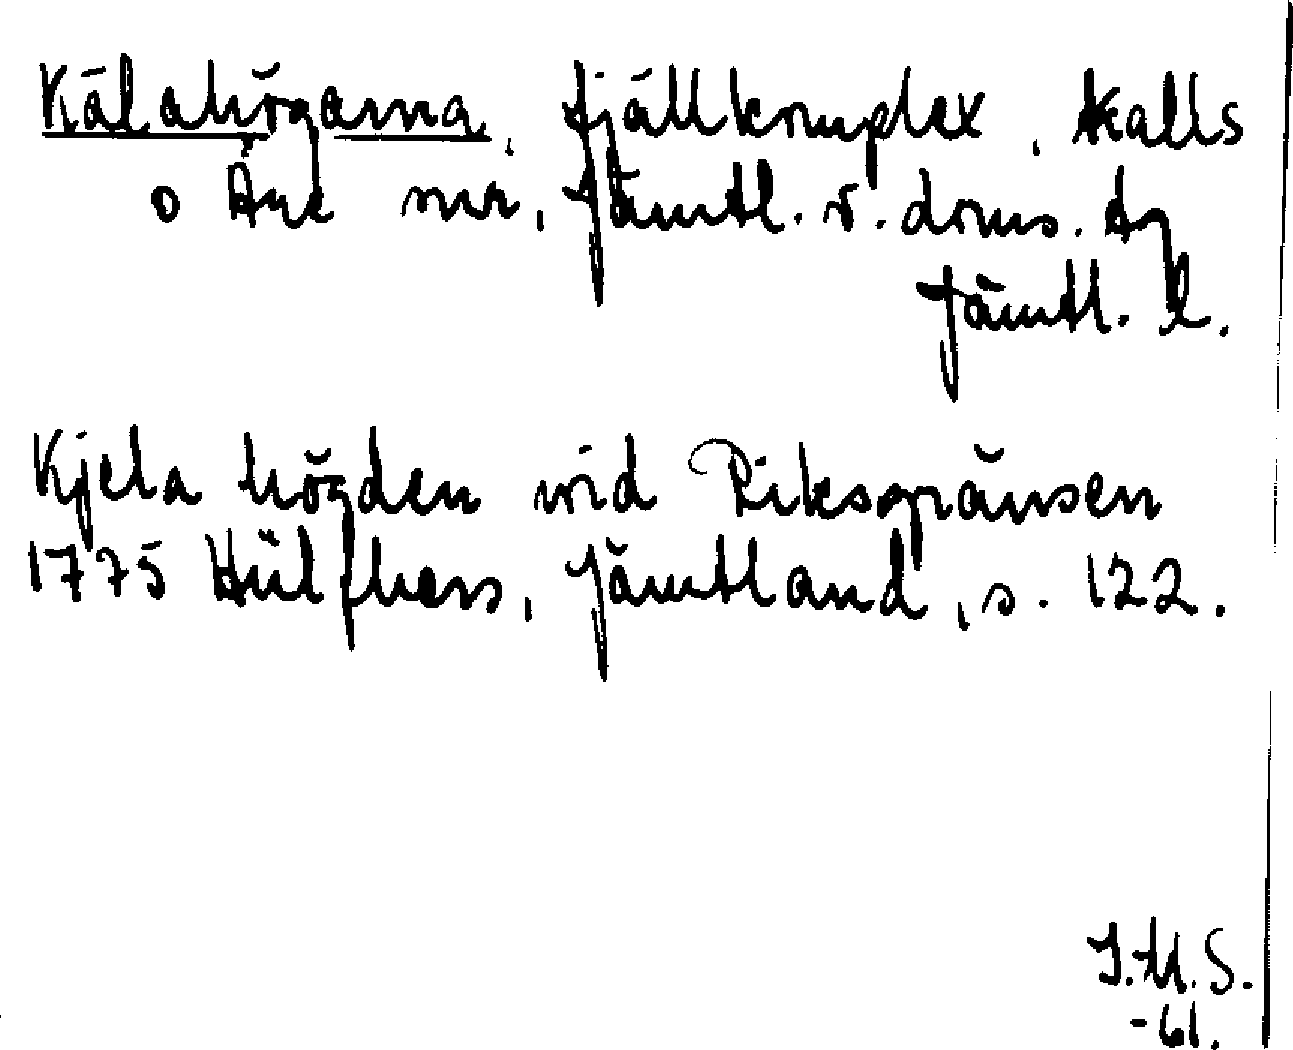 Kälahögarna, fjällkomplex, Kalls
o Åre snr, Jämtl. v. doms. tg
Jämtl. l.
Kjela högden wid Riksgränsen
1775 Hülphers, Jämtland, s. 122.
I.M.S.
-61.